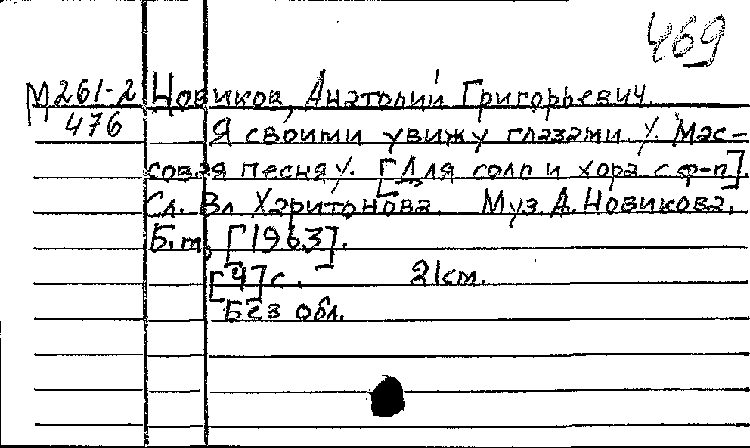 469
М 261-2 Новиков, Анатолий Григорьевич.
476 Я своими увижу глазами. /. Мас-
совая песня /. [Для соло и хора с ф-п].
Сл. Вл Харитонова. Муз. А. Новикова.
Б.m, [1963].
[4] с. 21 км.
Без обл.